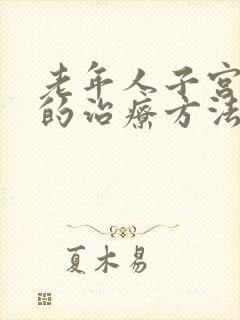 老年人子宫
的治疗方法
夏木易